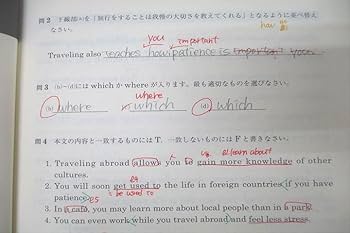 問2 下線部(a)を「旅行をすることは我慢の大切さを教えてくれる」となるように並べ替え
なさい。
how
you important
Traveling also teaches how patience is important you.
問3 (b)~(d)には which か where が入ります。最も適切なものを選びなさい。
where
(b) where which (d) which
問4 本文の内容と一致するものには T、一致しないものには F と書きなさい。
learn about
1. Traveling abroad allows you to gain more knowledge of other
cultures.
2. You will soon get used to the life in foreign countries if you have
patience. be used to
3. In a café, you may learn more about local people than in a park.
4. You can even work while you travel abroad and feel less stress.